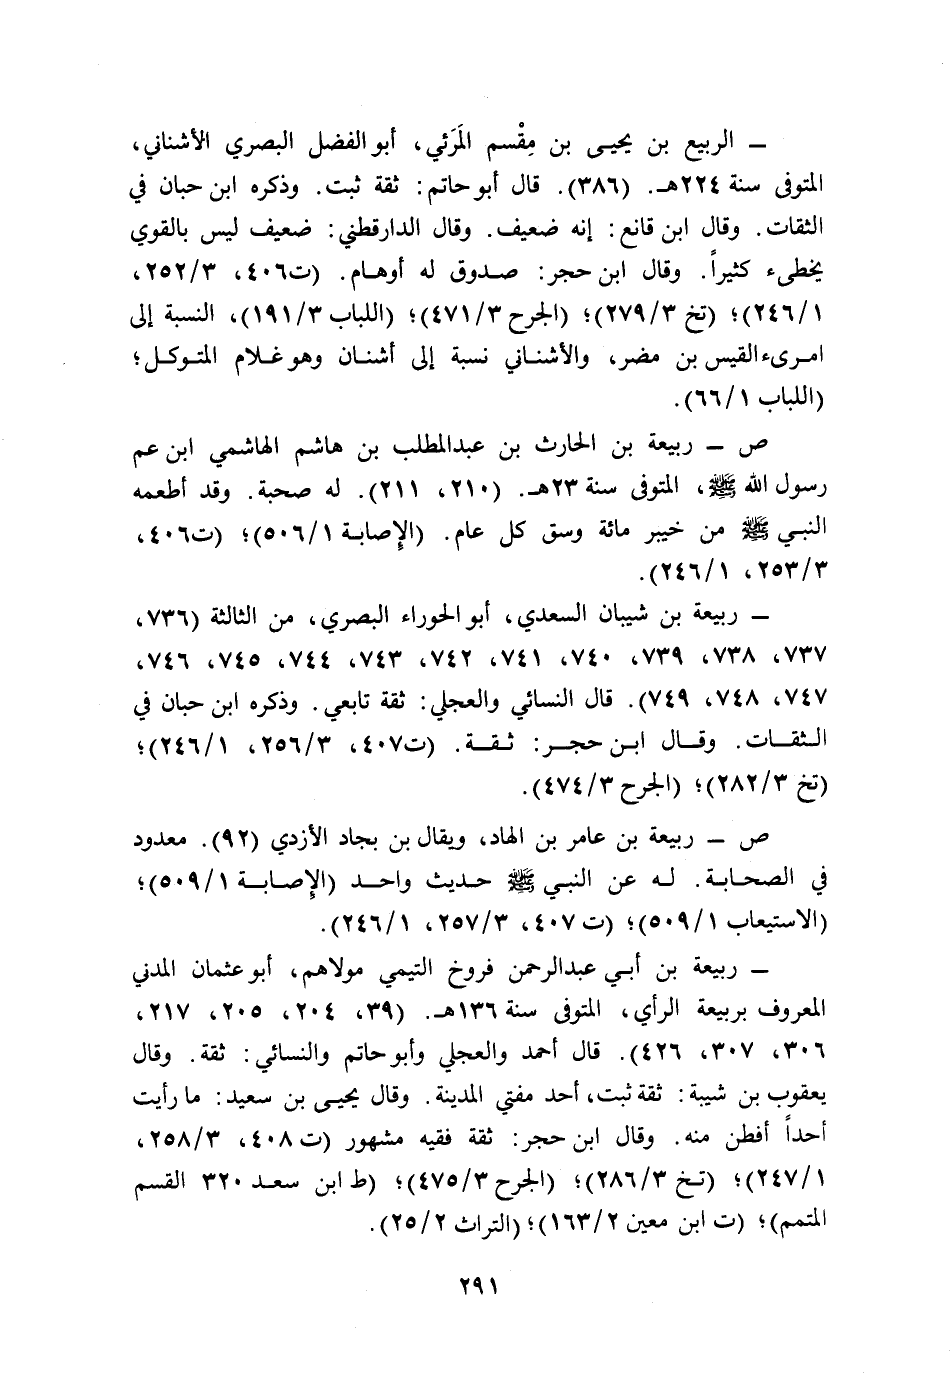 – الربيع بن يحيى بن مِقْسم المَرَئي، أبو الفضل البصري الأشناني،
المتوفى سنة ٢٢٤هـ. (٣٨٦). قال أبو حاتم: ثقة ثبت. وذكره ابن حبان في
الثقات. وقال ابن قانع: إنه ضعيف. وقال الدارقطني: ضعيف ليس بالقوي
يخطىء كثيراً. وقال ابن حجر: صدوق له أوهام. (ت٤٠٦، ٢٥٢/٣،
٢٤٦/١)؛ (تخ ٢٧٩/٣)؛ (الجرح ٤٧١/٣)؛ (اللباب ١٩١/٣)، النسبة إلى
امرىء القيس بن مضر، والأشناني نسبة إلى أشنان وهو غلام المتوكل؛
(اللباب ٦٦/١).
ص – ربيعة بن الحارث بن عبدالمطلب بن هاشم الهاشمي ابن عم
رسول الله ﷺ، المتوفى سنة ٢٣هـ. (٢١٠، ٢١١). له صحبة. وقد أطعمه
النبي ﷺ من خيبر مائة وسق كل عام. (الإصابة ٥٠٦/١)؛ (ت٤٠٦،
٢٥٣/٣، ٢٤٦/١).
– ربيعة بن شيبان السعدي، أبو الحوراء البصري، من الثالثة (٧٣٦،
٧٣٧، ٧٣٨، ٧٣٩، ٧٤٠، ٧٤١، ٧٤٢، ٧٤٣، ٧٤٤، ٧٤٥، ٧٤٦،
٧٤٧، ٧٤٨، ٧٤٩). قال النسائي والعجلي: ثقة تابعي. وذكره ابن حبان في
الثقات. وقال ابن حجر: ثقة. (ت٤٠٧، ٢٥٦/٣، ٢٤٦/١)؛
(تخ ٢٨٢/٣)؛ (الجرح ٤٧٤/٣).
ص – ربيعة بن عامر بن الهاد، ويقال بن بجاد الأزدي (٩٢). معدود
في الصحابة. له عن النبي ﷺ حديث واحد (الإصابة ٥٠٩/١)؛
(الاستيعاب ٥٠٩/١)؛ (ت ٤٠٧، ٢٥٧/٣، ٢٤٦/١).
– ربيعة بن أبي عبدالرحمن فروخ التيمي مولاهم، أبو عثمان المدني
المعروف بربيعة الرأي، المتوفى سنة ١٣٦هـ. (٣٩، ٢٠٤، ٢٠٥، ٢١٧،
٣٠٦، ٣٠٧، ٤٢٦). قال أحمد والعجلي وأبو حاتم والنسائي: ثقة. وقال
يعقوب بن شيبة: ثقة ثبت، أحد مفتي المدينة. وقال يحيى بن سعيد: ما رأيت
أحداً أفطن منه. وقال ابن حجر: ثقة فقيه مشهور (ت ٤٠٨، ٢٥٨/٣،
٢٤٧/١)؛ (تخ ٢٨٦/٣)؛ (الجرح ٤٧٥/٣)؛ (ط ابن سعد ٣٢٠ القسم
المتمم)؛ (ت ابن معين ١٦٣/٢)؛ (التراث ٢٥/٢).
٢٩١